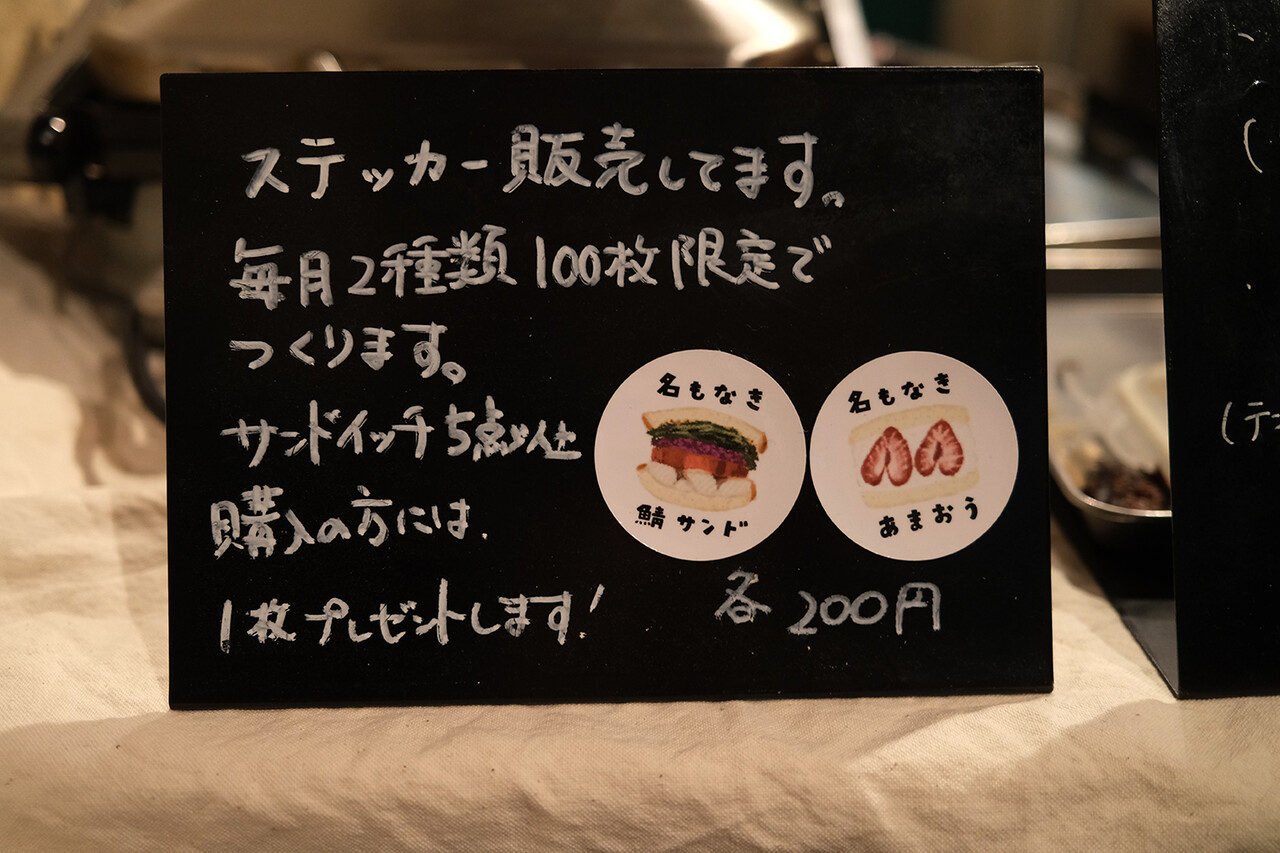 ステッカー販売してます。
毎月2種類100枚限定で
つくります。
サンドイッチ5点以上
購入の方には、
1枚プレゼントします!
名もなき
鯖サンド
名もなき
あまおう
各200円